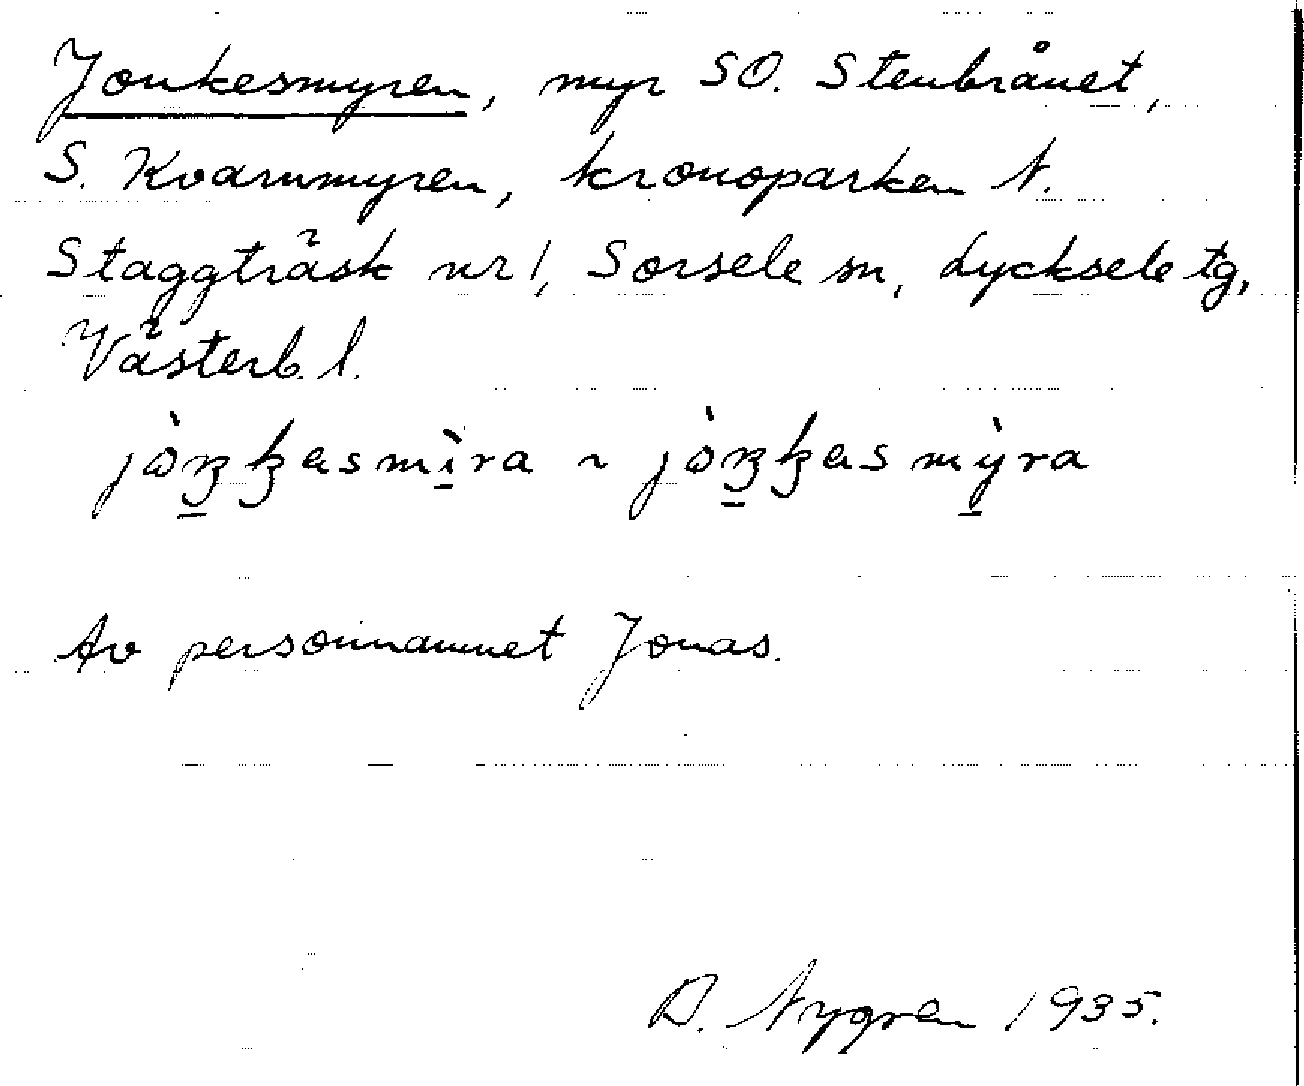 Jonkesmyren, myr SO. Stenbrånet,
S. Kvarnmyren, kronoparken N.
Staggträsk nr 1, Sorsele sn, Lycksele tg,
Västerb. l.
Av personnamnet Jonas.
Nygren 1935.